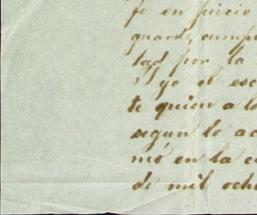 fe en juicio
guard, cumpl
tad por la
Y yo el esc
te quien a lo
segun lo ac
mó en la c
de mil ocho